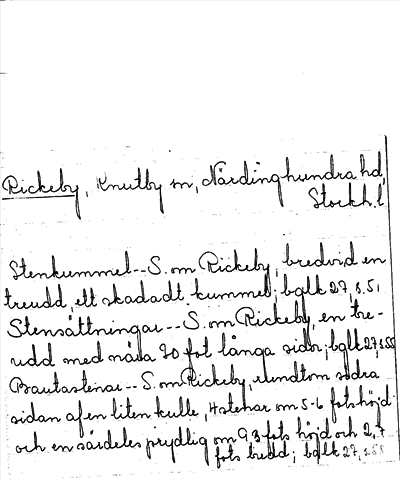 Rickeby, Knutby sn, Närdinghundra hd,
Stockh.l
Stenkummel--S. om Rickeby, bredvid en
treudd, ett skadadt kummel; bglk 27, s. 51
Stensättningar--S. om Rickeby, en tre-
udd med nära 20 fot långa sidor; bglk 27, s 55
Bautastenar--S. om Rickeby, rundtom södra
sidan af en liten kulle, 4 stenar om 5-6 fots höjd
och en särdeles prydlig om 9,3 fots höjd och 2,7
fots bredd; bglk 27, s. 58